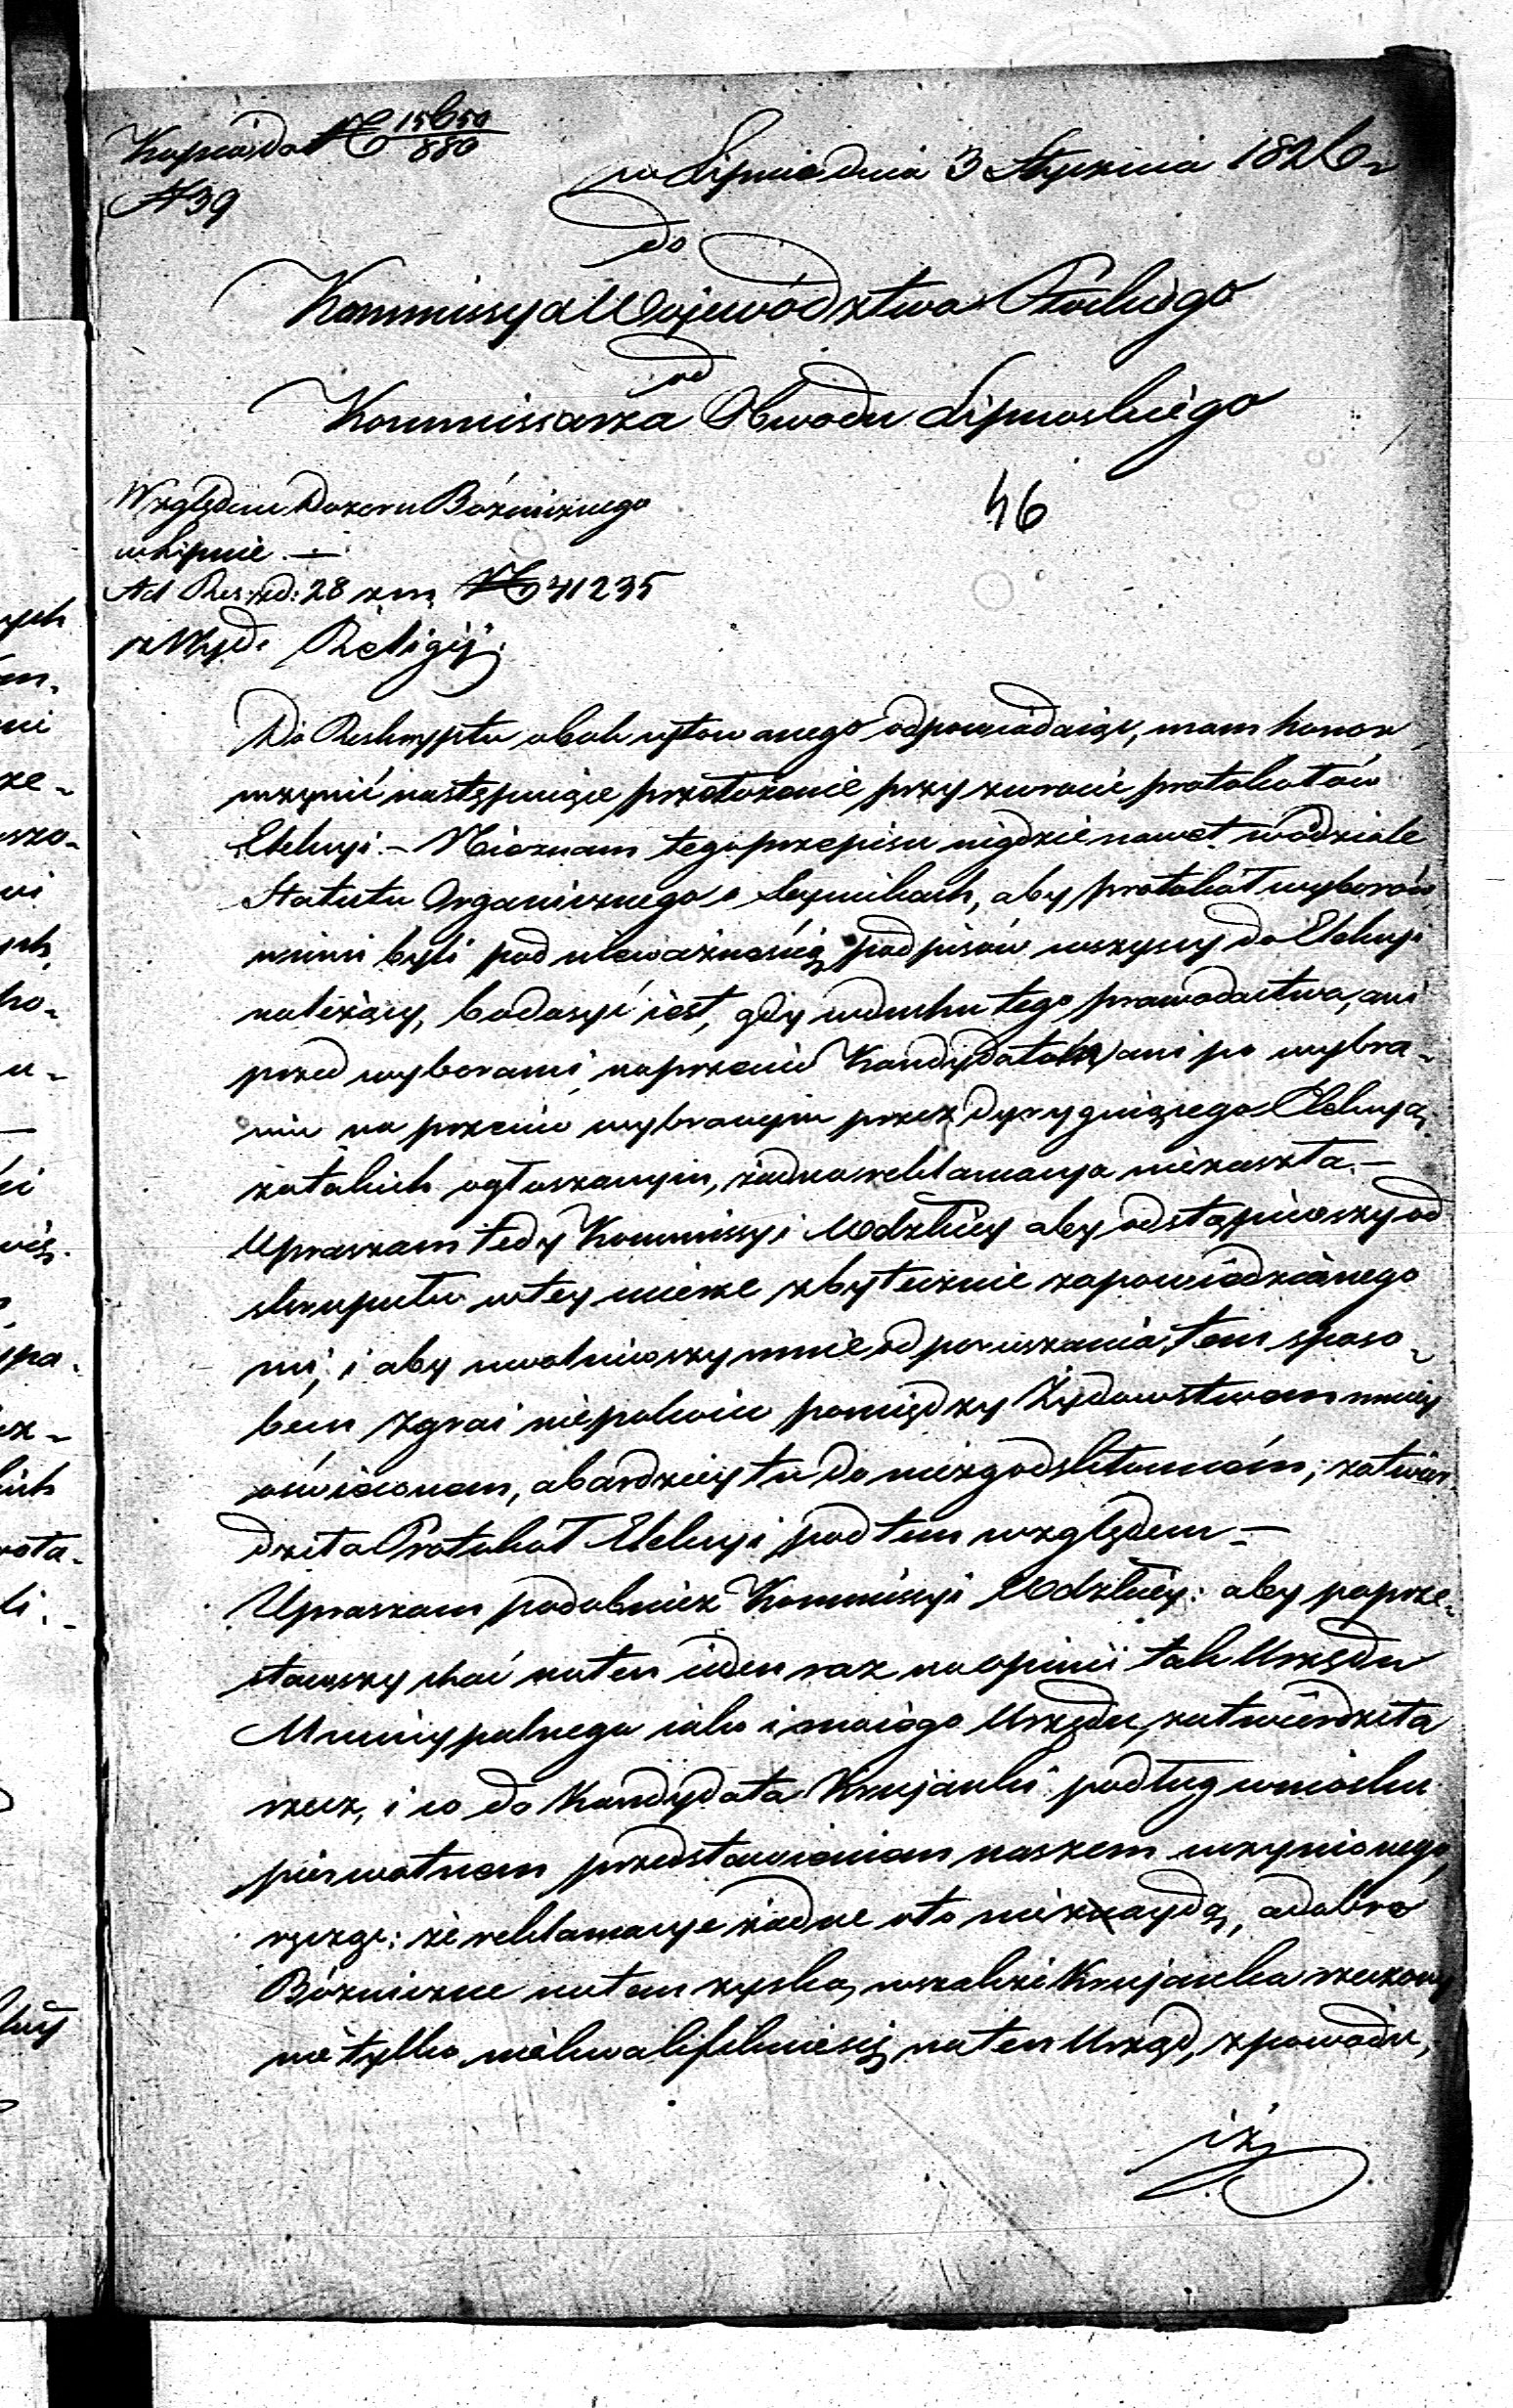 № 15650/880
N 39
w Lipnie dnia 3 Stycznia 1826 r
do
Kommissyi Województwa Płockiego
od
Kommissarza Obwodu Lipnoskiego
46
Względem Dozoru Bóźnicznego
w Lipnie. —
Ad Res: z d: 28 zm. № 41235
z Wyd: Religij:
Do Reskryptu obok cytowanego odpowiadaiąc, mam honor
uczynić następuiące przełożenie przy zwrocie protokołów
Elekcyi. — Nieznam tego przepisu nigdzie nawet w oddziale
Statutu Organicznego o Seymikach, aby protokół wyborów
winni byli pod nieważnością podpisów wszyscy do Elekcyi
należący, bo dosyć iest, gdy w duchu tego prawodastwa, ani
przed wyborami naprzeciw Kandydatom, ani po wybra-
niu na przeciw wybranym przez dyryguiącego Elekcyą
za takich ogłoszonym, żadna reklamacya niezaszła. —
Upraszam tedy Kommissyi Wdzkiey aby odstąpiwszy od
skrupułu w tey mierze zbytecznie zapowiedzianego
mi; i aby uwolniwszy mnie od poruszania tem sposo-
bem zgrai niepokoiu pomiędzy Żydowstwem mniey
oświeconem, a bardziey tu do niezgod skłonném; zatwier-
dziła Protokół Elekcyi pod tem względem —
Upraszam podobnież Kommissyi Wdzkiey: aby poprze-
stawszy choć na ten ieden raz na opinii tak Urzędu
Municypalnego iako i moiego Urzędu, zatwierdziła
rzecz, i co do Kandydata Krujanki podług wniosku
pierwotnem przedstawieniem naszem uczynionego,
ręcząc: że reklamacye żadne o to nie znaydą, a dobro
Bóźniczne na tem zyska, wszakże Krujanka rzeczony
nie tylko niekwalifikuie się na ten Urząd, z powodu,
iż